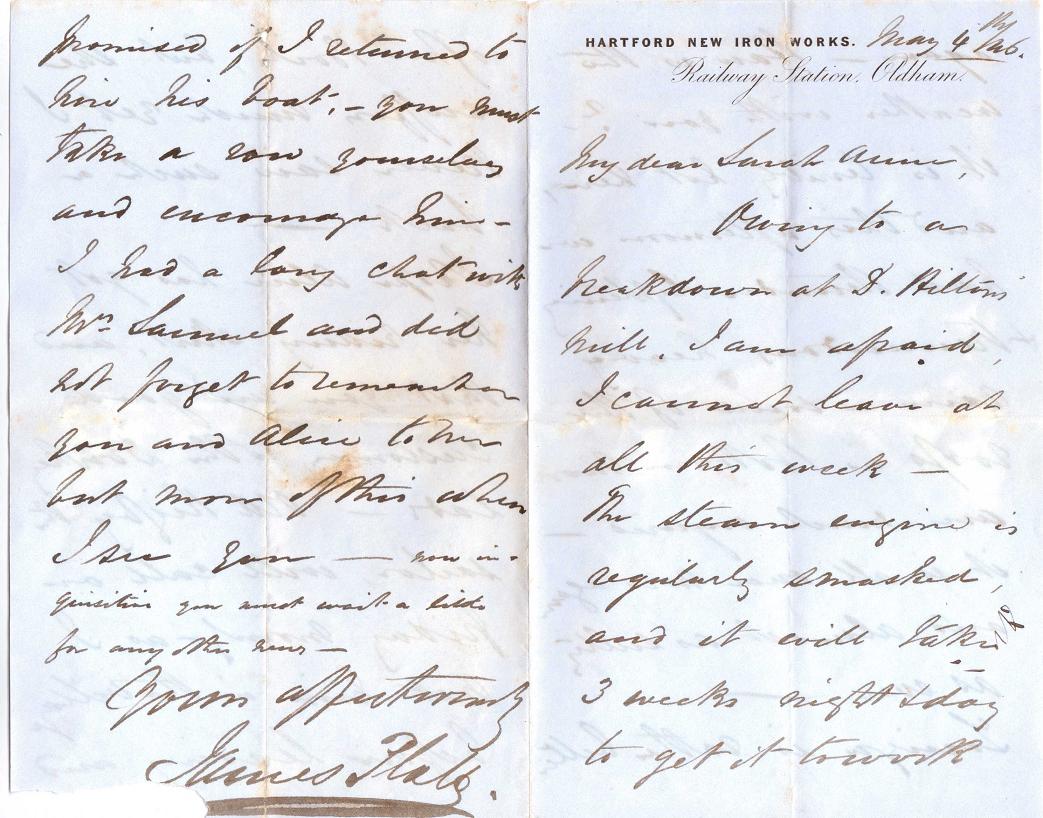 HARTFORD NEW IRON WORKS. May 4th
Railway Station, Oldham.
My dear Sarah Anne,
Owing to a
breakdown at D. Hilton's
Mill, I am afraid,
I cannot leave at
all this week —
The steam engine is
regularly smashed,
and it will take
3 weeks night & day
to get it to work
promised if I returned to
hire his boat, – you must
take a row yourselves
and encourage him –
I had a long chat with
Mrs. Samuel and did
not forget to remember
you and Alice to her
but more of this when
I see you — now in-
quisitive you must wait a little
for any other news —
Yours affectionately
James Platt.